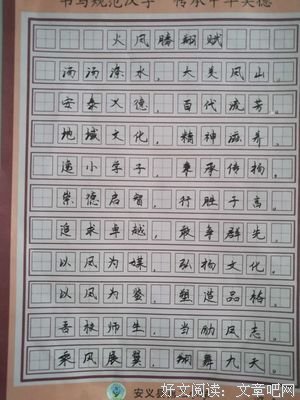 书写规范汉字 传承中华美德
火凤腾翔赋
汤汤涤水，大美凤山。
安泰义德，百代流芳。
地域文化，精神滋养。
逸小学子，秉承传扬。
崇德启智，行胜于言。
追求卓越，敢争群先。
以凤为媒，弘扬文化。
以凤为鉴，塑造品格。
吾校师生，当励凤志。
乘风展翼，翱舞九天。
安义
好文阅读：文章吧网